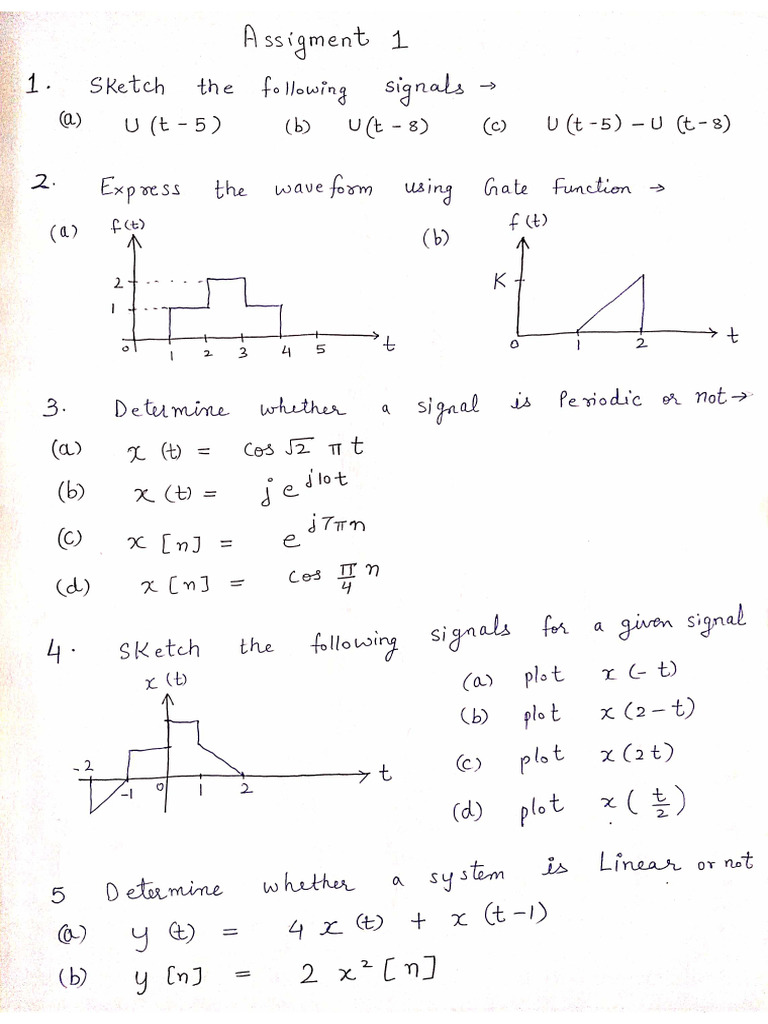 Assigment 1
1. Sketch the following signals →
(a) U(t-5) (b) U(t-8) (c) U(t-5) - U(t-8)
2. Express the waveform using Gate Function →
(a) f(t) (b) f(t)
2
1
0 1 2 3 4 5 t
K
0 1 2 t
3. Determine whether a signal is Periodic or not →
(a) x(t) = cos √2 π t
(b) x(t) = j e^{j10t}
(c) x[n] = e^{j7πn}
(d) x[n] = cos π/4 n
4. Sketch the following signals for a given signal
x(t)
-2 -1 0 1 2 t
(a) plot x(-t)
(b) plot x(2-t)
(c) plot x(2t)
(d) plot x(t/2)
5 Determine whether a system is Linear or not
(a) y(t) = 4x(t) + x(t-1)
(b) y[n] = 2x²[n]